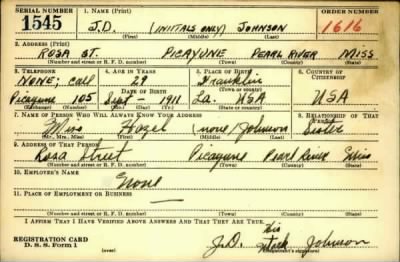 SERIAL NUMBER 1. NAME (Print) ORDER NUMBER
1545 J.D. (INITIALS ONLY) JOHNSON 1616
(First) (Middle) (Last)
2. ADDRESS (Print)
ROSA ST. PICAYUNE PEARL RIVER MISS
(Number and street or R. F. D. number) (Town) (County) (State)
3. TELEPHONE 4. AGE IN YEARS 5. PLACE OF BIRTH 6. COUNTRY OF CITIZENSHIP
NONE; call 29 Franklin
DATE OF BIRTH (Town or county)
Picayune 105 Sept 1911 La. USA USA
(Exchange) (Number) (Mo.) (Day) (Yr.) (State or country)
7. NAME OF PERSON WHO WILL ALWAYS KNOW YOUR ADDRESS 8. RELATIONSHIP OF THAT PERSON
Miss Hazel (none) Johnson Sister
(Mr., Mrs., Miss) (First) (Middle) (Last)
9. ADDRESS OF THAT PERSON
Rosa Street Picayune Pearl River Miss
(Number and street or R. F. D. number) (Town) (County) (State)
10. EMPLOYER'S NAME
None
11. PLACE OF EMPLOYMENT OR BUSINESS
(Number and street or R. F. D. number) (Town) (County) (State)
I AFFIRM THAT I HAVE VERIFIED ABOVE ANSWERS AND THAT THEY ARE TRUE.
REGISTRATION CARD
D. S. S. Form 1
His
J.D. Mark Johnson
(Registrant's signature)